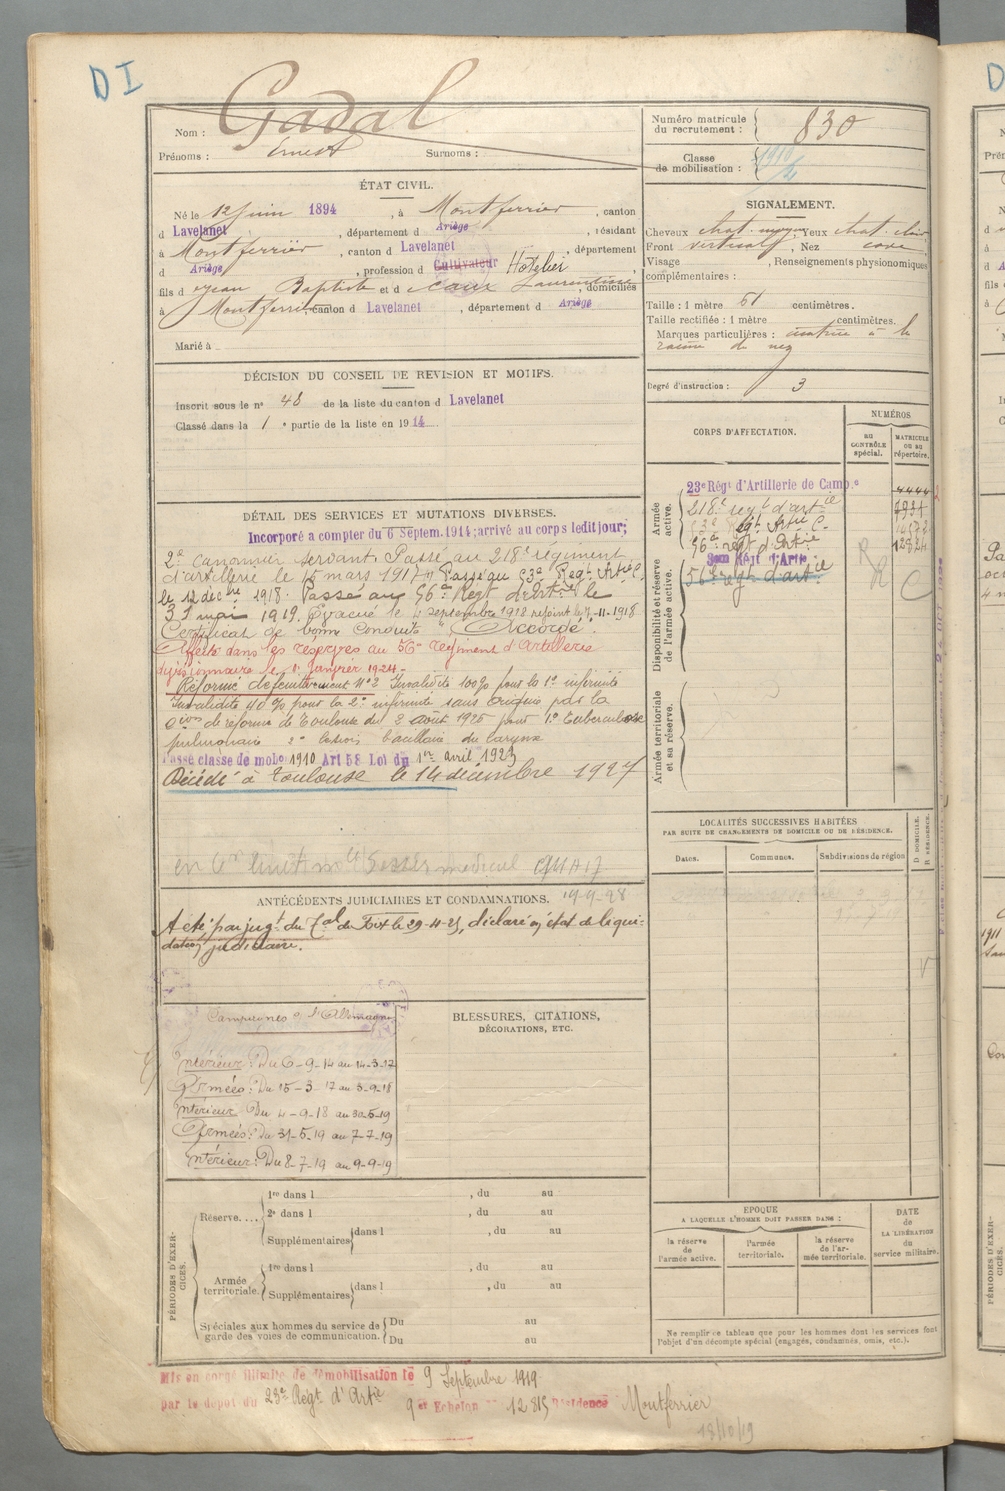 D I
Nom : Gadal
Prénoms : Ernest Surnoms :
Numéro matricule du recrutement : 830
Classe de mobilisation : 1910
ÉTAT CIVIL.
Né le 12 juin 1894, à Montferrier, canton
d Lavelanet, département d Ariège, résidant
à Montferrier, canton d Lavelanet, département
d Ariège, profession d Cultivateur Hôtelier
fils d Jean Baptiste et d Caux Laurentine, domiciliés
à Montferrier canton d Lavelanet, département d Ariège
Marié à
SIGNALEMENT.
Cheveux chat. moyen, Yeux chat. clair
Front vertical, Nez cave
Visage, Renseignements physionomiques
complémentaires :
Taille : 1 mètre 61 centimètres.
Taille rectifiée : 1 mètre centimètres.
Marques particulières : cicatrice à la
racine du nez
Degré d'instruction : 3
DÉCISION DU CONSEIL DE REVISION ET MOTIFS.
Inscrit sous le n° 48 de la liste du canton d Lavelanet
Classé dans la 1e partie de la liste en 1914
DÉTAIL DES SERVICES ET MUTATIONS DIVERSES.
Incorporé a compter du 6 Septem. 1914; arrivé au corps ledit jour;
2e Canonnier servant. Passé au 218e régiment
d'artillerie le 15 mars 1917. Passé au 53e Régt Artie C.
le 12 décbre 1918. Passé au 56e Régt d'Artie le
31 mai 1919. Évacué le 4 septembre 1918 rejoint le 7-11-1918
Certificat de bonne Conduite "Accordé".
Affecté dans les réserves au 56e régiment d'Artillerie
divisionnaire le 1er janvier 1924.-
Réformé définitivement N°2 Invalidité 100% pour la 1e infirmité
Invalidité 40% pour la 2e infirmité sans origine par la
Cion de réforme de Toulouse du 3 août 1925 pour 1° tuberculose
pulmonaire 2° lésions bacillaire du larynx
Passé classe de mobon 1910 Art 58 Loi du 1er avril 1923
Décédé à Toulouse le 14 décembre 1927
CORPS D'AFFECTATION.
NUMÉROS
AU CONTRÔLE spécial.
MATRICULE ou au répertoire.
Armée active.
23e Régt d'Artillerie de Campe 4444
218e régt d'artie
Régt Artie C.
56e régt d'Artie
Disponibilité et réserve de l'armée active.
Régt d'Artie
56e régt d'artie
R
R C
Armée territoriale et sa réserve.
LOCALITÉS SUCCESSIVES HABITÉES
PAR SUITE DE CHANGEMENTS DE DOMICILE OU DE RÉSIDENCE.
D. DOMICILE. R. RÉSIDENCE.
Dates. Communes. Subdivisions de région
ANTÉCÉDENTS JUDICIAIRES ET CONDAMNATIONS.
A été par jugt du Tal de Foix le 29-4-25, déclaré en état de liqui-
dation judiciaire.
Campagnes c. l'Allemagne
Intérieur : Du 6-9-14 au 14-3-17
Armées : Du 15-3-17 au 3-9-18
Intérieur Du 4-9-18 au 30-5-19
Armées : Du 31-5-19 au 7-7-19
Intérieur : Du 8-7-19 au 9-9-19
BLESSURES, CITATIONS,
DÉCORATIONS, ETC.
PÉRIODES D'EXERCICES.
Réserve....
1re dans l , du au
2e dans l , du au
Supplémentaires dans l , du au
Armée territoriale.
1re dans l , du au
Supplémentaires dans l , du au
Spéciales aux hommes du service de garde des voies de communication.
Du au
Du au
EPOQUE
A LAQUELLE L'HOMME DOIT PASSER DANS :
la réserve de l'armée active.
l'armée territoriale.
la réserve de l'armée territoriale.
DATE de LA LIBÉRATION du service militaire.
Ne remplir ce tableau que pour les hommes dont les services font
l'objet d'un décompte spécial (engagés, condamnés, omis, etc.).
Mis en congé illimité de démobilisation le 9 Septembre 1919
par le dépot du 23e Régt d'Artie 9e Echelon 12815 Résidence Montferrier
18/10/19